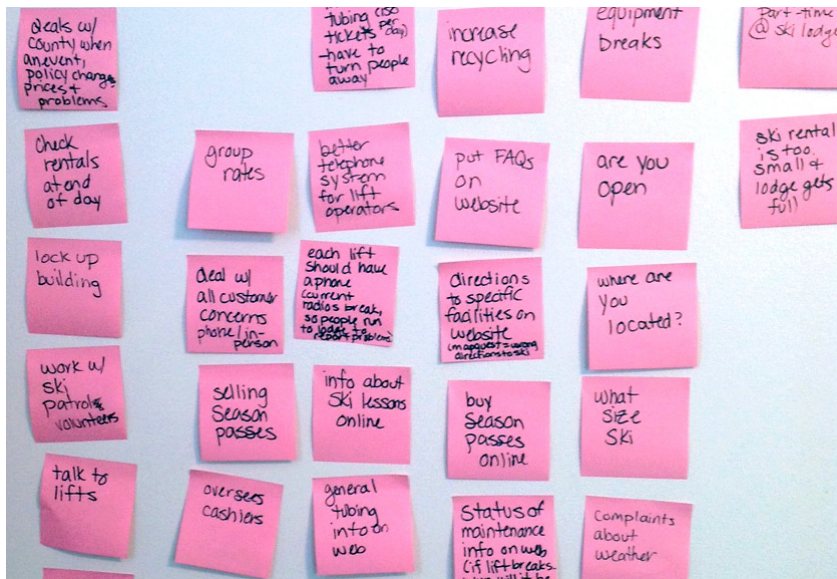 deals w/
county when
an event,
policy change
prices +
problems
check
rentals
at end
of day
lock up
building
work w/
ski
patrol &
volunteers
talk to
lifts
group
rates
deal w/
all customer
concerns
phone/in-
person
selling
season
passes
oversees
cashiers
tubing (150
tickets per
day)
-have to
turn people
away
better
telephone
system
for lift
operators
each lift
should have
a phone
(current
radios break,
so people run
to lodge to
report problem)
info about
ski lessons
online
general
tubing
info on
web
increase
recycling
put FAQs
on
website
directions
to specific
facilities on
website
(mapquest = wrong
directions to ski
buy
season
passes
online
status of
maintenance
info on web
(if lift breaks
equipment
breaks
are you
open
where are
you
located?
what
size
ski
complaints
about
weather
part-time
@ ski lodge
ski rental
is too
small &
lodge gets
full